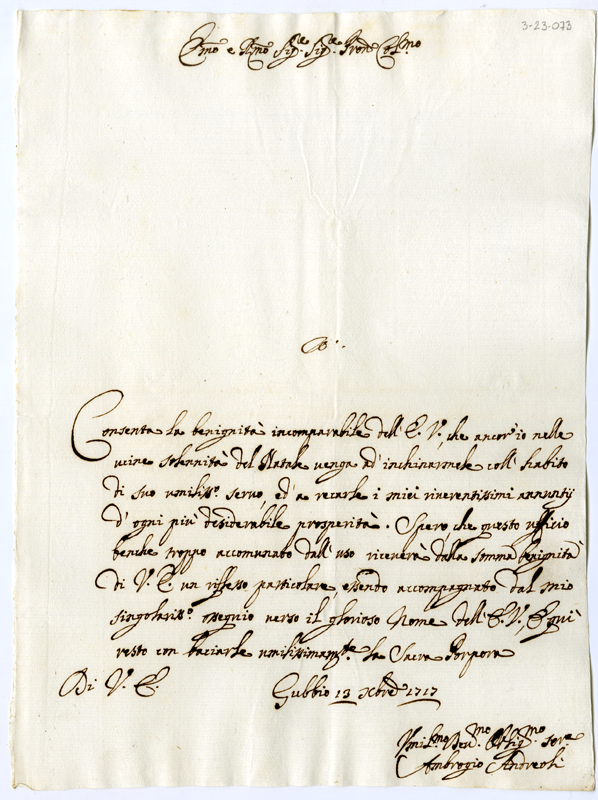 3-23-073
Emo e Rmo Sigre Sigre Prone Colmo
Consenta la benignità incomparabile dell'E. V., che ancor'io nelle
vicine solennità del Natale venga ad'inchinarmele coll'habito
di suo umiliss.o servo, ed'a recarle i miei riverentissimi annuntij
d'ogni più desiderabile prosperità. Spero che questo uffizio
benche troppo accomunato dall'uso riceverà dalla somma benignità
di V. E. un riflesso particolare essendo accompagnato dal mio
singolariss.o ossequio verso il glorioso Nome dell'E. V., E qui
resto con baciarle umilissimam.te la Sacra Porpora
Di V. E.
Gubbio 13 Xbre 1717
Umil.mo Dev.mo Oblig.mo ser.e
Ambrogio Andreoli